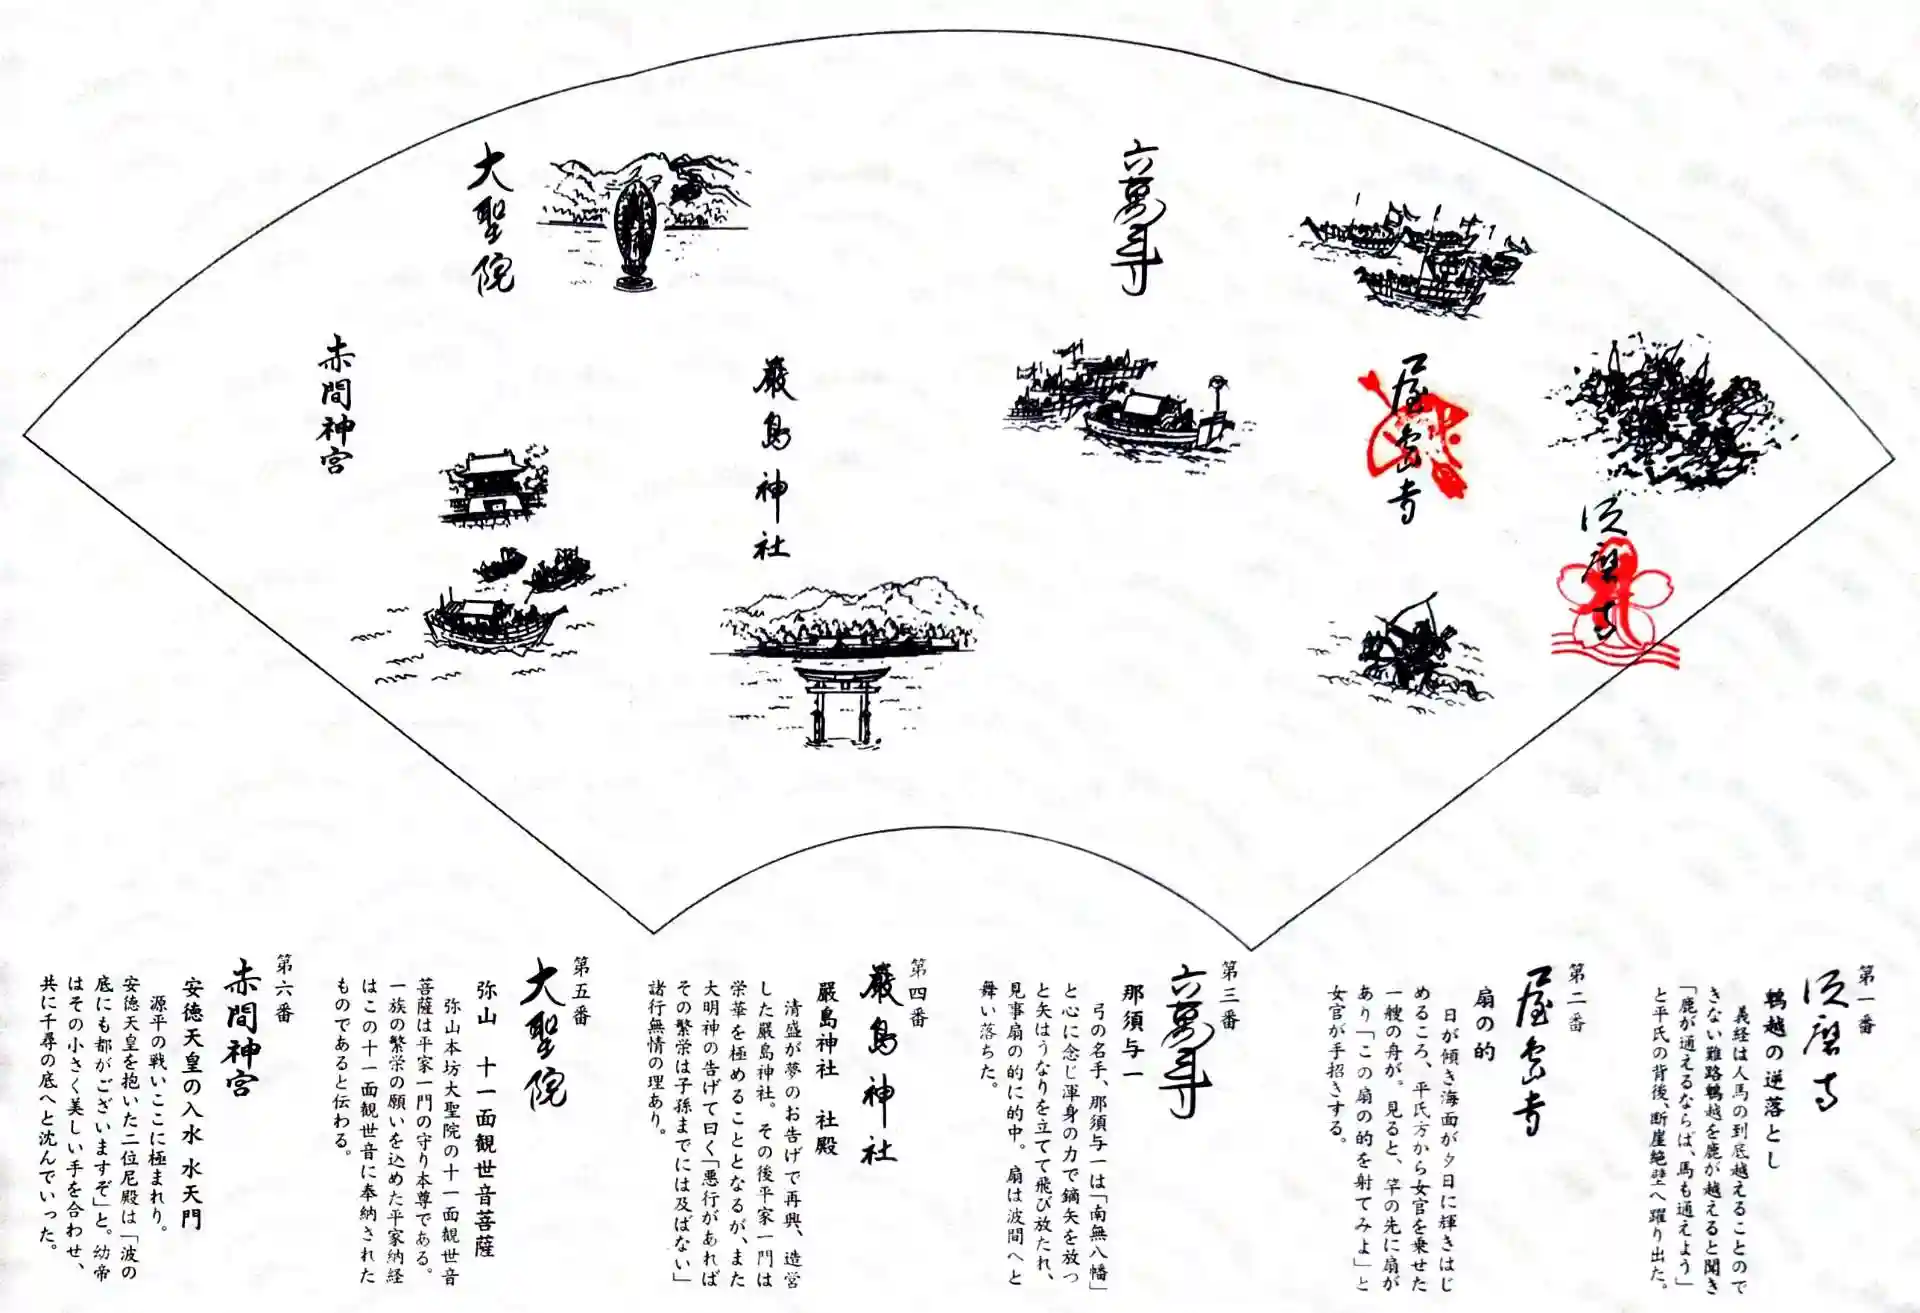 須磨寺
屋島寺
六萬寺
厳島神社
大聖院
赤間神宮
第一番
須磨寺
鵯越の逆落とし
義経は人馬の到底越えることので
きない難路鵯越を鹿が越えると聞き
「鹿が通えるならば、馬も通えよう」
と平氏の背後、断崖絶壁へ躍り出た。
第二番
屋島寺
扇の的
日が傾き海面が夕日に輝きはじ
めるころ、平氏方から女官を乗せた
一艘の舟が。見ると、竿の先に扇が
あり「この扇の的を射てみよ」と
女官が手招きする。
第三番
六萬寺
那須与一
弓の名手、那須与一は「南無八幡」
と心に念じ渾身の力で鏑矢を放つ
と矢はうなりを立てて飛び放たれ、
見事扇の的に的中。扇は波間へと
舞い落ちた。
第四番
厳島神社
厳島神社 社殿
清盛が夢のお告げで再興、造営
した厳島神社。その後平家一門は
栄華を極めることとなるが、また
大明神の告げて曰く「悪行があれば
その繁栄は子孫までには及ばない」
諸行無情の理あり。
第五番
大聖院
弥山 十一面観世音菩薩
弥山本坊大聖院の十一面観世音
菩薩は平家一門の守り本尊である。
一族の繁栄の願いを込めた平家納経
はこの十一面観世音に奉納された
ものであると伝わる。
第六番
赤間神宮
安徳天皇の入水 水天門
源平の戦いここに極まれり。
安徳天皇を抱いた二位尼殿は「波の
底にも都がございますぞ」と。幼帝
はその小さく美しい手を合わせ、
共に千尋の底へと沈んでいった。